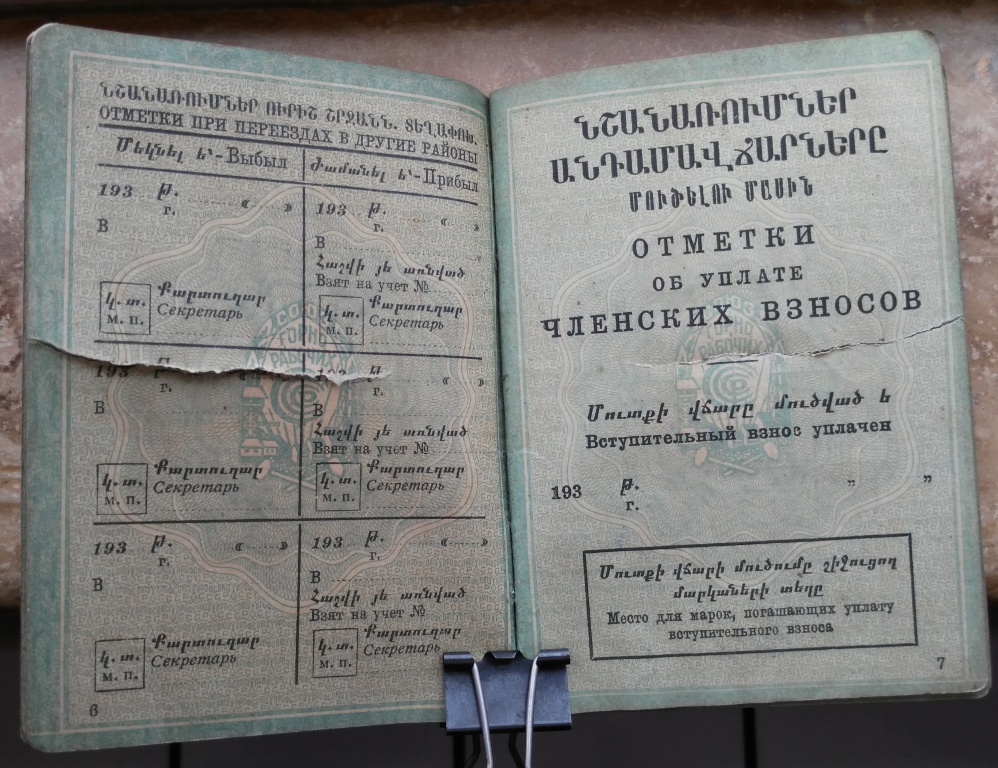 ՆՇԱՆԱՌՈՒՄՆԵՐ ՈՒՐԻՇ ՇՐՋԱՆՆ. ՏԵՂԱՓՈԽ.
ОТМЕТКИ ПРИ ПЕРЕЕЗДАХ В ДРУГИЕ РАЙОНЫ
Մեկնել ե՝-Выбыл
Ժամանել ե՝-Прибыл
193 թ. « »
г.
В
Կ. Տ. Քարտուղար
М. П. Секретарь
193 թ. « »
г.
В
Հաշվի յե առնված
Взят на учет №
Կ. Տ. Քարտուղար
М. П. Секретарь
193 թ.
г.
В
Կ. Տ. Քարտուղար
М. П. Секретарь
193 թ. « »
г.
В
Հաշվի յե առնված
Взят на учет №
Կ. Տ. Քարտուղար
М. П. Секретарь
193 թ. « »
г.
В
Կ. Տ. Քարտուղար
М. П. Секретарь
193 թ. « »
г.
В
Հաշվի յե առնված
Взят на учет №
Կ. Տ. Քարտուղար
М. П. Секретарь
6
ՆՇԱՆԱՌՈՒՄՆԵՐ
ԱՆԴԱՄԱՎՃԱՐՆԵՐԸ
ՄՈՒԾԵԼՈՒ ՄԱՍԻՆ
ОТМЕТКИ
ОБ УПЛАТЕ
ЧЛЕНСКИХ ВЗНОСОВ
Մուտքի վճարը մուծված ե
Вступительный взнос уплачен
193 թ. „ ”
г.
Մուտքի վճարի մուծումը շիջուցող
մարկաների տեղը
Место для марок, погашающих уплату
вступительного взноса
7